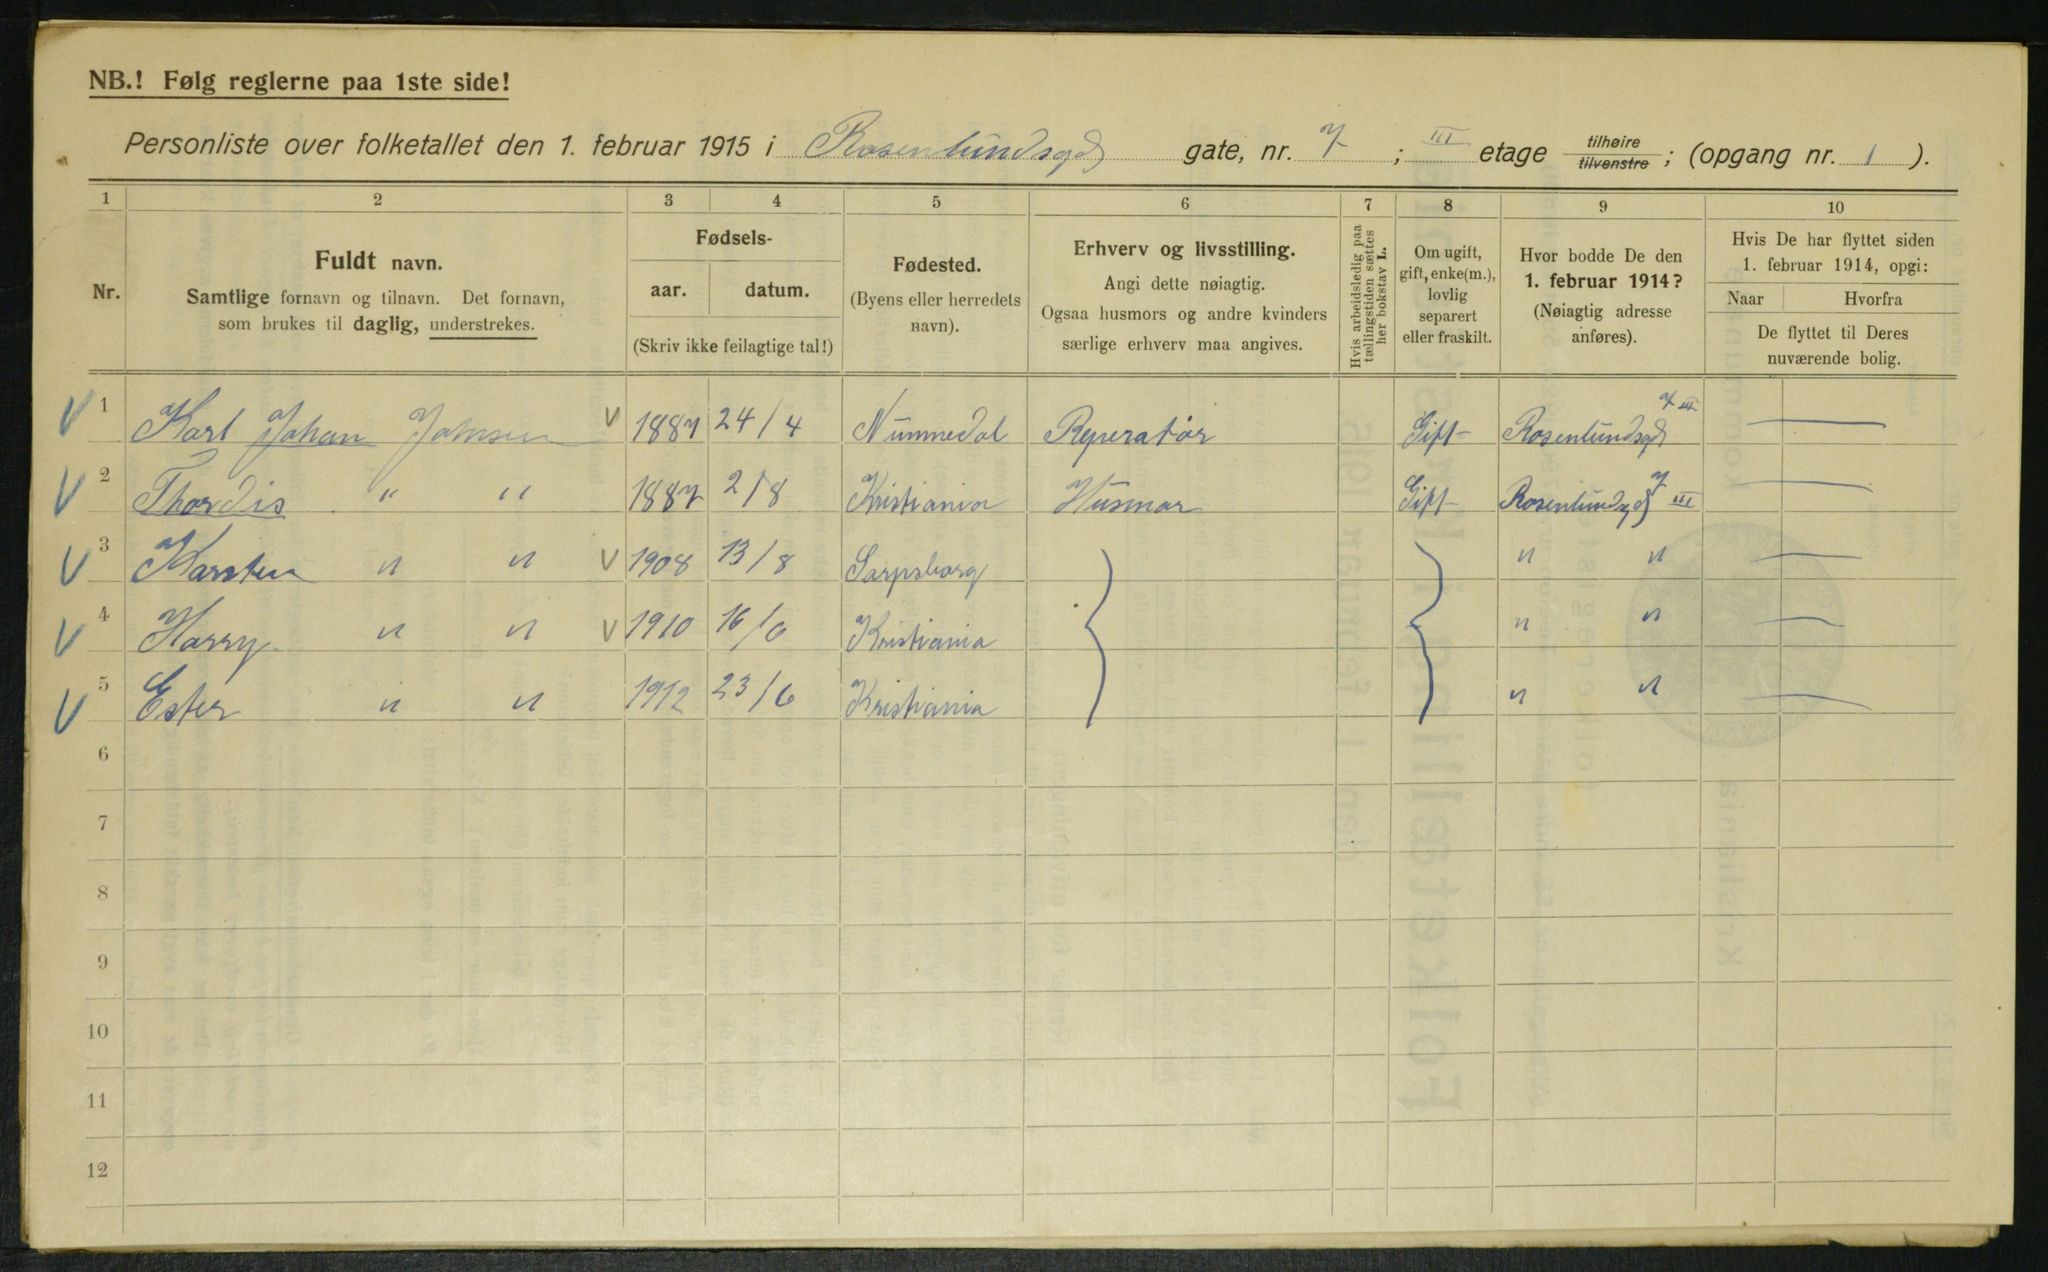 NB.! Følg reglerne paa 1ste side!
Personliste over folketallet den 1. februar 1915 i Rosenlundsgd gate, nr. 7 ; III etage tilhøire tilvenstre ; (opgang nr. 1 ).
1 2 3 4 5 6 7 8 9 10
Nr.
Fuldt navn.
Samtlige fornavn og tilnavn. Det fornavn,
som brukes til daglig, understrekes.
Fødsels-
aar. datum.
(Skriv ikke feilagtige tal!)
Fødested.
(Byens eller herredets
navn).
Erhverv og livsstilling.
Angi dette nøiagtig.
Ogsaa husmors og andre kvinders
særlige erhverv maa angives.
Hvis arbeidsledig paa
tællingstiden sættes
her bokstav L.
Om ugift,
gift, enke(m.),
lovlig
separert
eller fraskilt.
Hvor bodde De den
1. februar 1914?
(Nøiagtig adresse
anføres).
Hvis De har flyttet siden
1. februar 1914, opgi:
Naar Hvorfra
De flyttet til Deres
nuværende bolig.
1 Karl Johan Johnsen 1887 24/4 Nummedal Reperatør Gift Rosenlundsgd 7 III
2 Thordis " " 1887 2/8 Kristiania Husmor Gift Rosenlundsgd 7 III
3 Karsten " " 1908 13/8 Sarpsborg " "
4 Harry " " 1910 16/6 Kristiania " "
5 Ester " " 1912 23/6 Kristiania " "
6
7
8
9
10
11
12